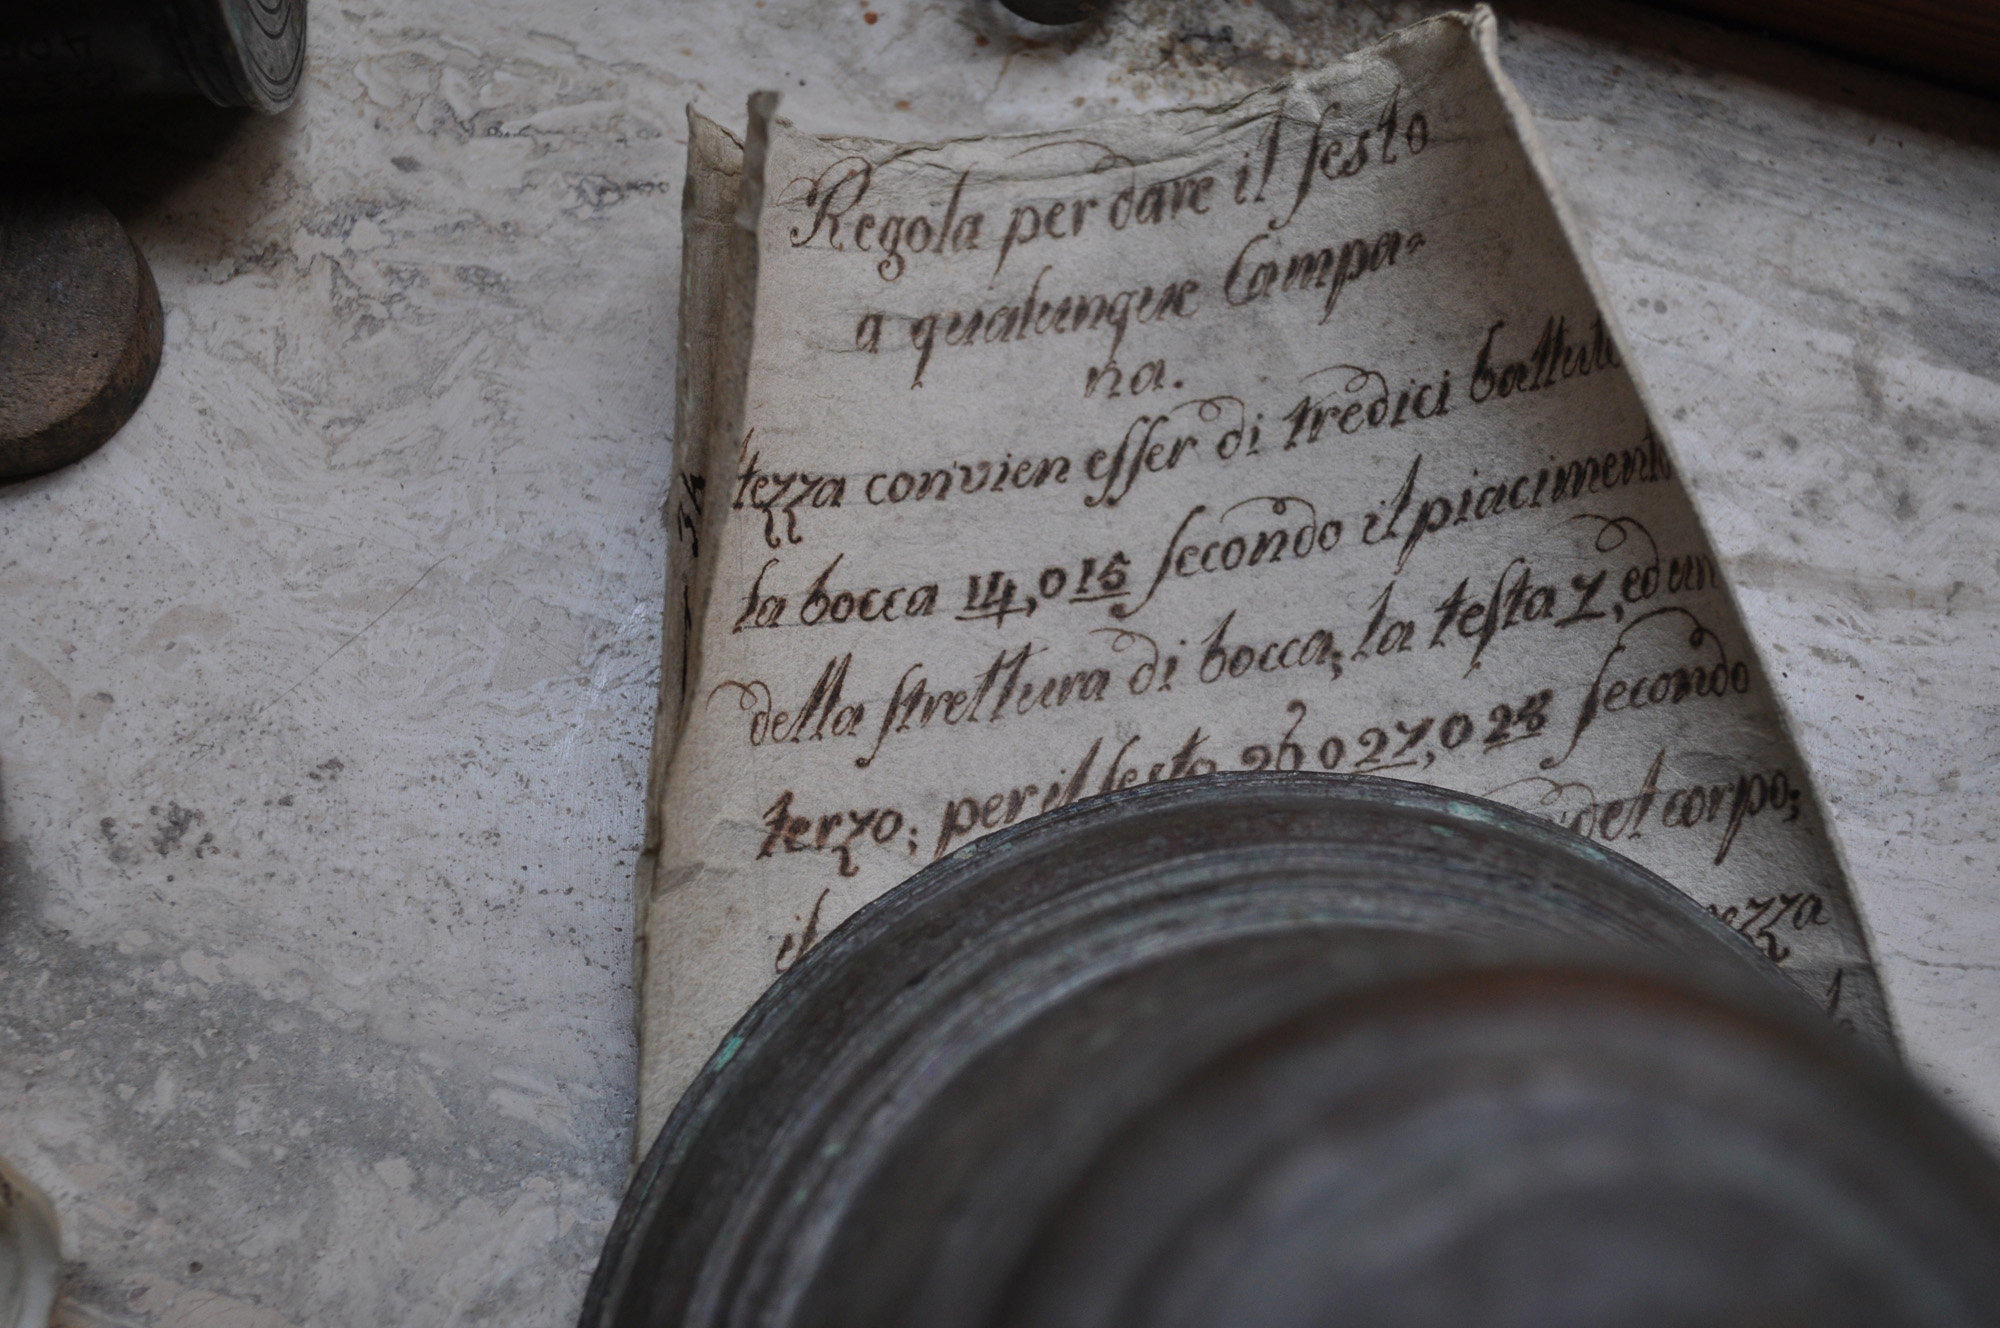 Regola per dare il sesto
a qualunque Campa=
na.
tezza convien esser di tredici battute
la bocca 14, o 15 secondo il piacimento
della strettura di bocca; la testa 7, ed un
terzo; per il sesto 26 o 27, o 28 secondo
del corpo;
il